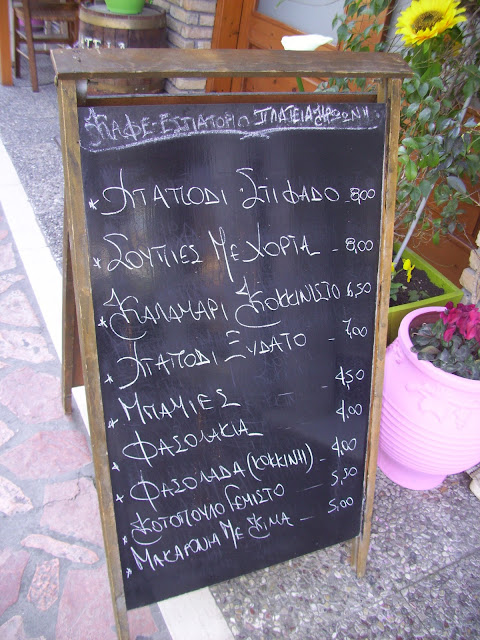 ΚΑΦΕ-ΕΣΤΙΑΤΟΡΙΟ ΠΛΑΤΕΙΑ
* ΧΤΑΠΟΔΙ ΣΤΙΦΑΔΟ - 8,00
* ΣΟΥΠΙΕΣ ΜΕ ΧΟΡΤΑ - 8,00
* ΚΑΛΑΜΑΡΙ ΚΟΚΚΙΝΙΣΤΟ 6,50
* ΧΤΑΠΟΔΙ ΞΥΔΑΤΟ - 7,00
* ΜΠΑΜΙΕΣ - - 4,50
* ΦΑΣΟΛΑΚΙΑ - 4,00
* ΦΑΣΟΛΑΔΑ (ΚΟΚΚΙΝΗ) - 4,00
* ΚΟΤΟΠΟΥΛΟ ΓΕΜΙΣΤΟ - 5,50
* ΜΑΚΑΡΟΝΙΑ ΜΕ ΚΙΜΑ - 5,00